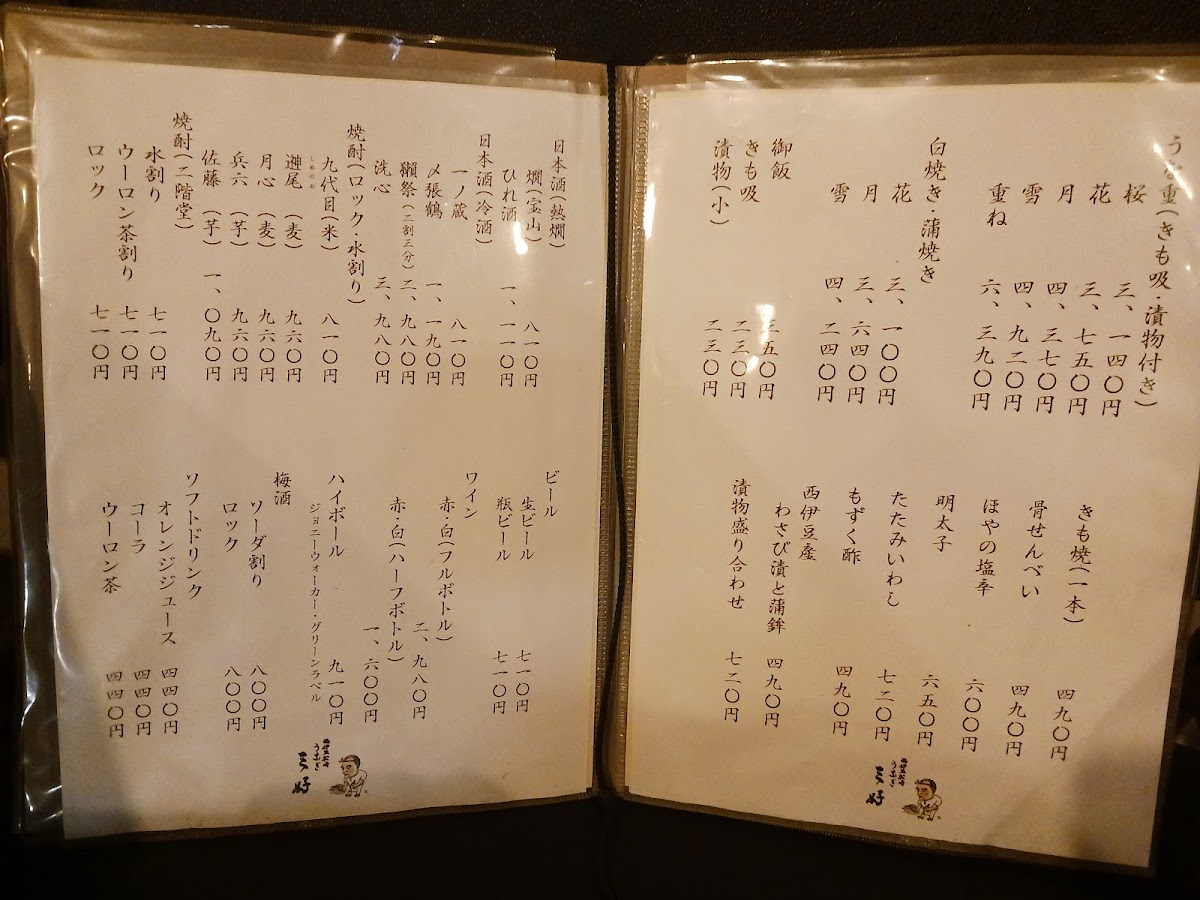 うな重(きも吸・漬物付き)
桜 三、一四〇円
花 三、七五〇円
月 四、三七〇円
雪 四、九二〇円
重ね 六、三九〇円
白焼き・蒲焼き
花 三、一〇〇円
月 三、六四〇円
雪 四、二四〇円
御飯 三五〇円
きも吸 二三〇円
漬物(小) 二三〇円
きも焼(一本) 四九〇円
骨せんべい 四九〇円
ほやの塩辛 六〇〇円
明太子 六五〇円
たたみいわし 七二〇円
もずく酢 四九〇円
西伊豆産
わさび漬と蒲鉾 四九〇円
漬物盛り合わせ 七二〇円
うなぎ
三好
日本酒(熱燗)
燗(宝山) 八一〇円
ひれ酒 一、一一〇円
日本酒(冷酒)
一ノ蔵 八一〇円
〆張鶴 一、一九〇円
獺祭(二割三分) 二、九八〇円
洗心 三、九八〇円
焼酎(ロック・水割り)
九代目(米) 八一〇円
しめのお
(麦) 九六〇円
月心(麦) 九六〇円
兵六(芋) 九六〇円
佐藤(芋) 一、〇九〇円
焼酎(二階堂)
水割り 七一〇円
ウーロン茶割り 七一〇円
ロック 七一〇円
ビール
生ビール 七一〇円
瓶ビール 七一〇円
ワイン
赤・白(フルボトル) 二、九八〇円
赤・白(ハーフボトル) 一、六〇〇円
ハイボール 九一〇円
ジョニーウォーカー・グリーンラベル
梅酒
ソーダ割り 八〇〇円
ロック 八〇〇円
ソフトドリンク
オレンジジュース 四四〇円
コーラ 四四〇円
ウーロン茶 四四〇円
うなぎ
三好